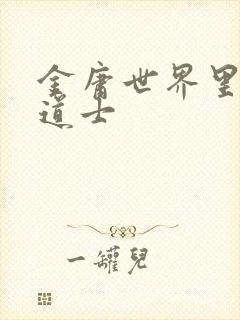 金庸世界里
道士
一罐儿